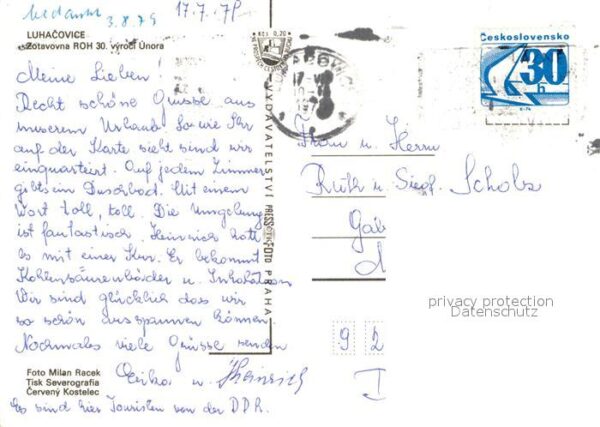 3.8.79
17.7.79
LUHAČOVICE
Zotavovna ROH 30. výročí Února
Kčs 0,70
Československo
30
h
Meine Lieben!
Recht schöne Grüsse aus
unserem Urlaub. So wie Ihr
auf der Karte sieht sind wir
einquartiert. Auf jedem Zimmer
gibts ein Duschbad. Mit einem
Wort toll, toll. Die Umgebung
ist fantastisch. Heinrich
es mit einer Kur. Er bekommt
Kohlensäurebäder u. Inhalation
Wir sind glücklich dass wir
so schön ausspannen können.
Nochmales viele Grüsse senden
Erika u. Heinrich
Es sind hier Touristen von der DDR.
VYDAVATELSTVÍ PRESSFOTO PRAHA
Frau u. Herrn
Ruth u. Siegf. Scholz
Gab
d
privacy protection
Datenschutz
9 2
D
Foto Milan Racek
Tisk Severografia
Červený Kostelec